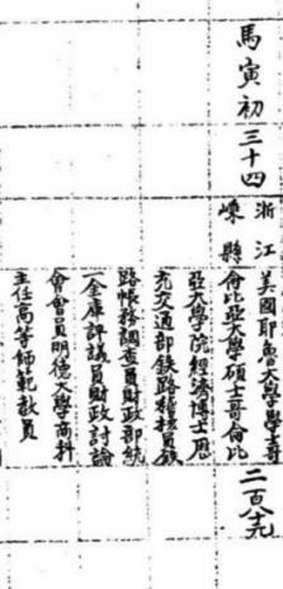 馬寅初
三十四
浙江
嵊縣
美國耶魯大學學士哥
倫比亞大學碩士哥倫比
亞大學院經濟博士歷
充交通部鉄路稽核員鉄
路帳務調查員財政部統
一金庫評議員財政討論
會會員明德大學商科
主任高等師範教員
二百八十元